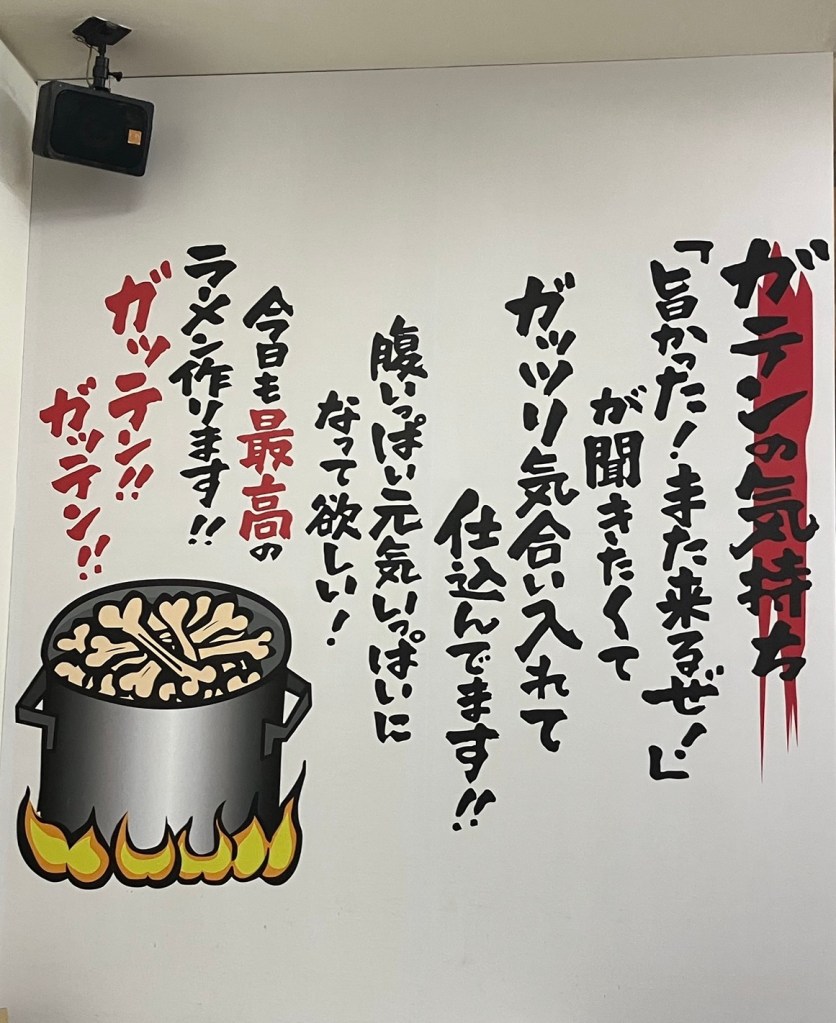 ガテンの気持ち
「旨かった！また来るぜ！」
が聞きたくて
ガッツリ気合い入れて
仕込んでます!!
腹いっぱい元気いっぱいに
なって欲しい！
今日も最高の
ラーメン作ります!!
ガッテン!!
ガッテン!!